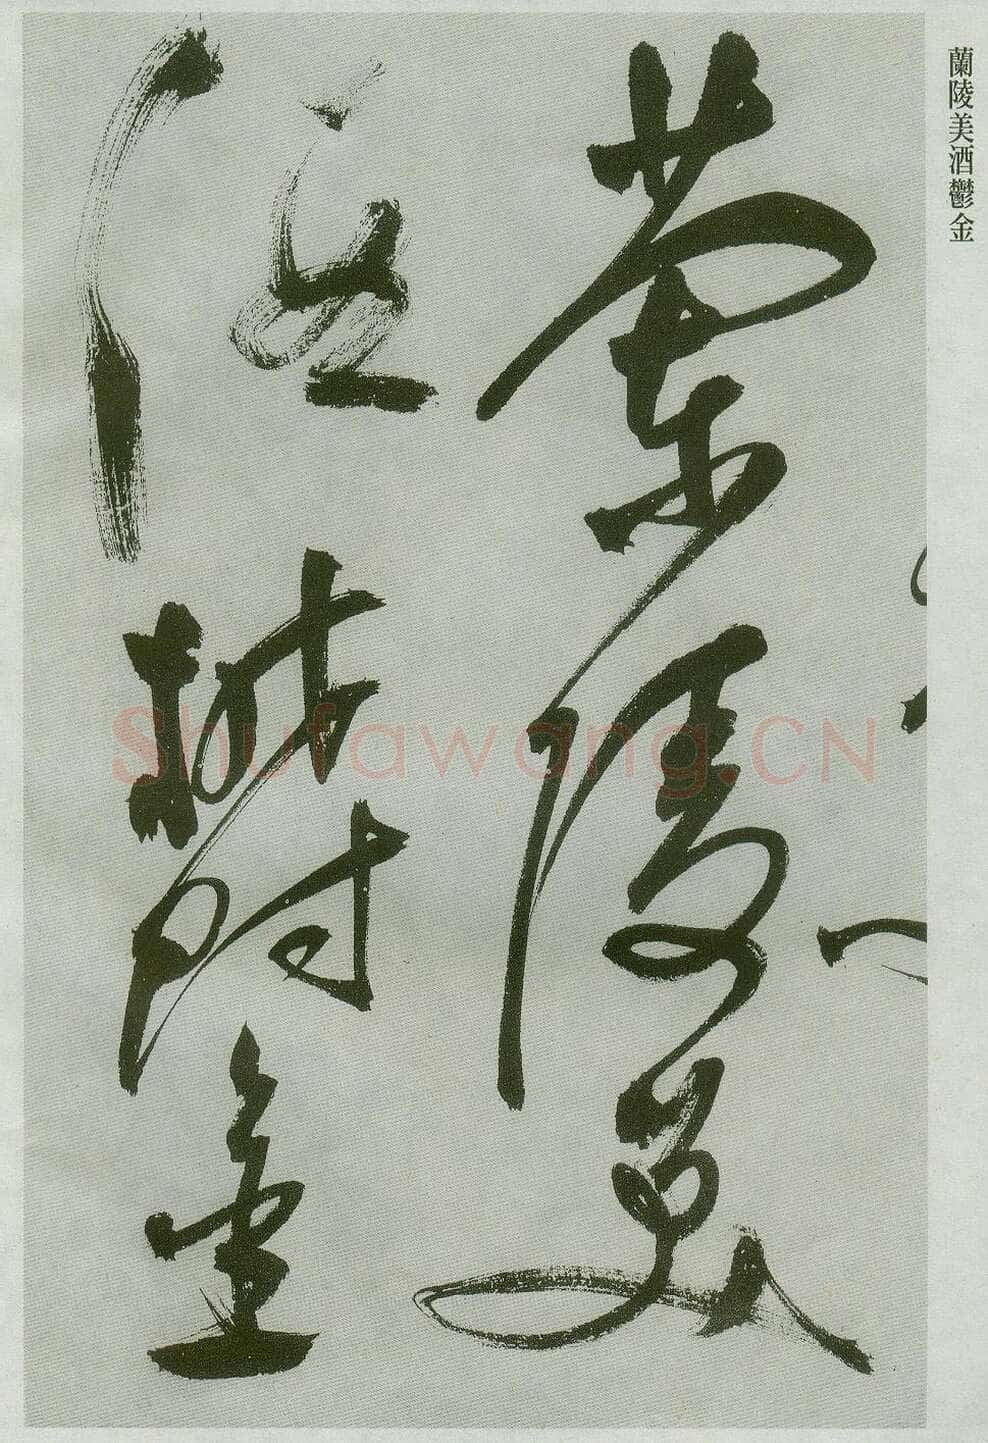 蘭陵美酒鬱金
蘭陵美
酒鬱金
Shufawang.CN